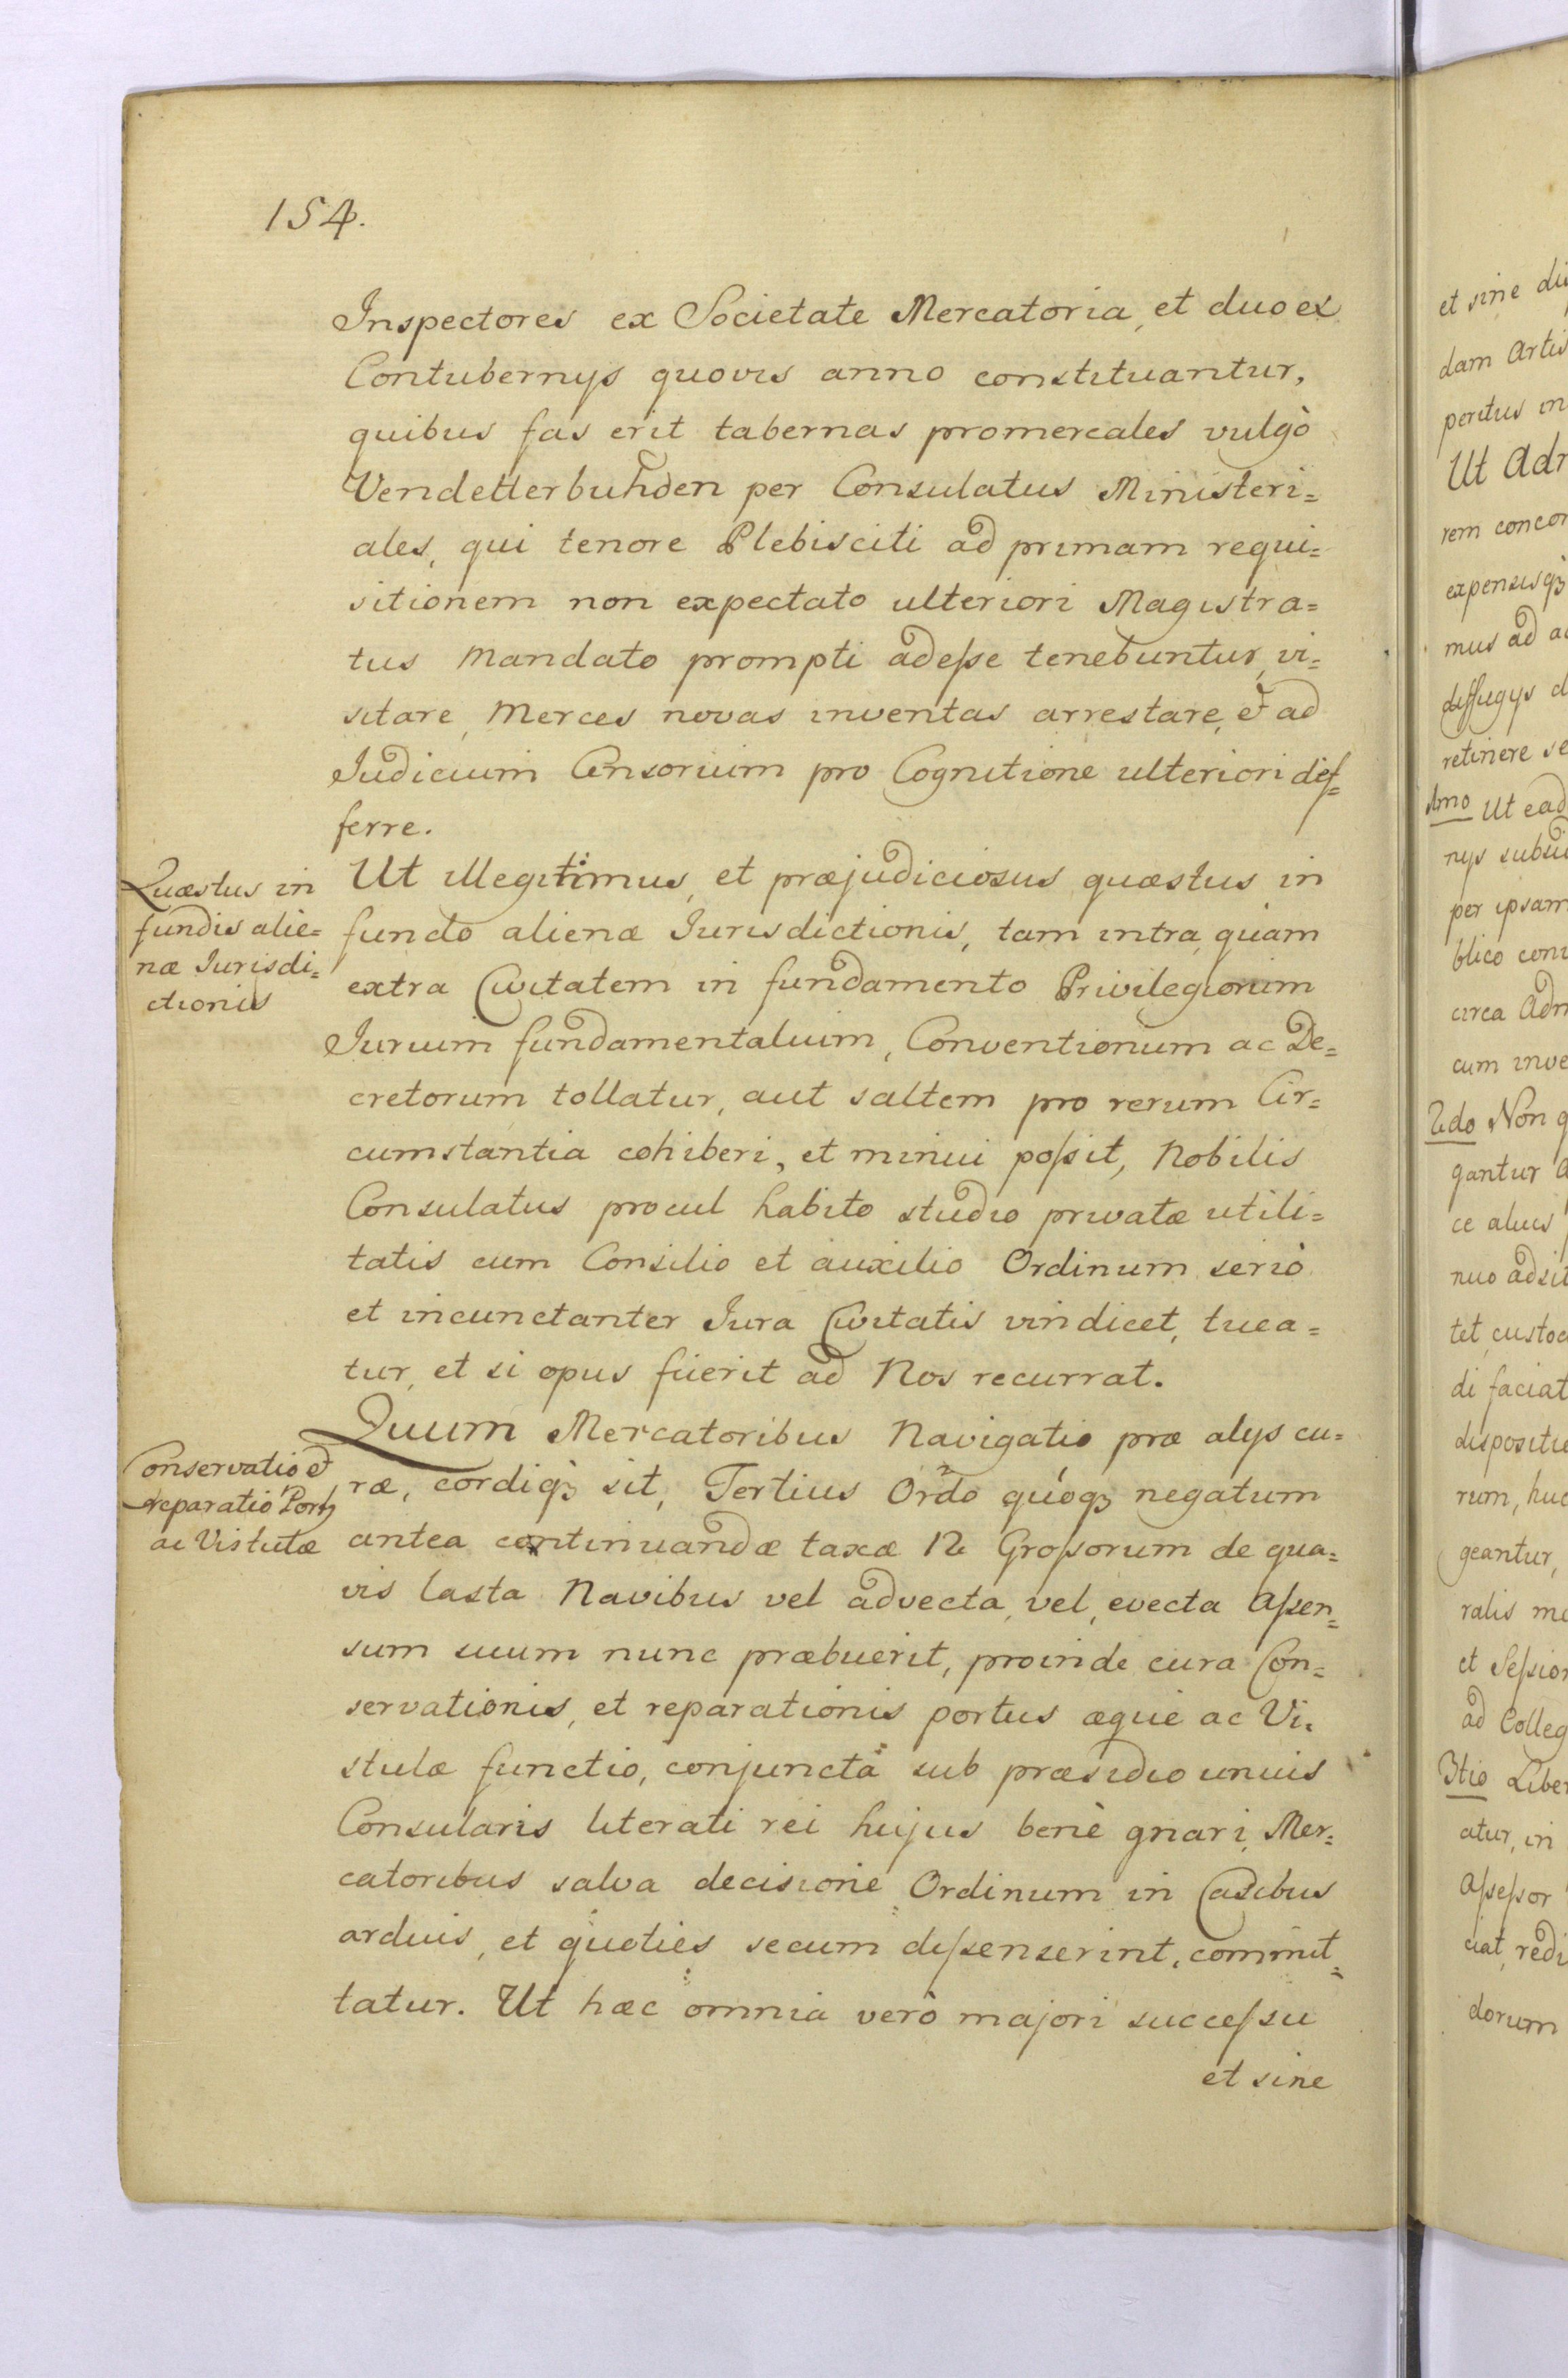 154.
Inspectores ex Societate Mercatoria, et duo ex
Contubernys quovis anno constituantur,
quibus fas erit tabernas promercales vulgò
Vendetterbuhden per Consulatus Ministeri=
ales, qui tenore Plebisciti ad primam requi=
sitionem non expectato ulteriori Magistra=
tus Mandato prompti adeſse tenebuntur, vi=
sitare, Merces novas inventas arrestare, et ad
Judicium Censorium pro Cognitione ulteriori def=
ferre.
Quæstus in
fundis alie=
næ Jurisdi=
ctionis
Ut illegitimus, et præjudiciosus quæstus in
fundo alienæ Jurisdictionis, tam intra, quàm
extra Civitatem in fundamento Privilegiorum
Jurium fundamentalium, Conventionum ac De=
cretorum tollatur, aut saltem pro rerum Cir=
cumstantia cohiberi, et minui poſsit, Nobilis
Consulatus procul habito studio privatæ utili=
tatis cum Consilio et auxilio Ordinum seriò
et incunctanter Jura Civitatis vindicet, tuea=
tur, et si opus fuerit ad Nos recurrat.
Conservatio et
reparatio Portꝫ
ac Vistulæ
Quum Mercatoribus Navigatio præ alys cu=
ræ, cordiqꝫ sit, Tertius Ordo quoqꝫ negatum
antea continuandæ taxæ 12 Groſsorum de qua=
vis lasta Navibus vel advecta, vel, evecta Aſsen=
sum suum nunc præbuerit, proinde cura Con=
servationis, et reparationis portus æque ac Vi=
stulæ functio, conjuncta sub præsidio unius
Consularis literati rei hujus benè gnari, Mer=
catoribus salva decisione Ordinum in Casibus
arduis, et quoties secum diſsenserint, commit=
tatur. Ut hæc omnia verò majori succeſsu
et sine
et sine
dam Artis
peritus in
Ut
rem
expensisqꝫ
mus ad
diffugys
retinere
Ut
nys
per ipsam
blico
circa
cum
2do Non
gantur
ce alius
nuo adsit
tet,
di faciat
rum,
geantur,
ralis
et
ad
3tio
atur, in
Aſseſsor
ciat,
dorum